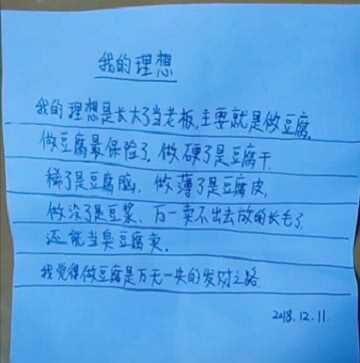 我的理想
我的理想是长大了当老板,主要就是做豆腐,
做豆腐最保险了,做硬了是豆腐干,
稀了是豆腐脑,做薄了是豆腐皮,
做没了是豆浆,万一卖不出去放的长毛了,
还能当臭豆腐卖,
我觉得做豆腐是万无一失的发财之路
2018.12.11.